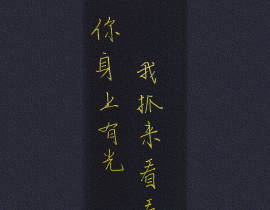 你身上有光
我抓来看看